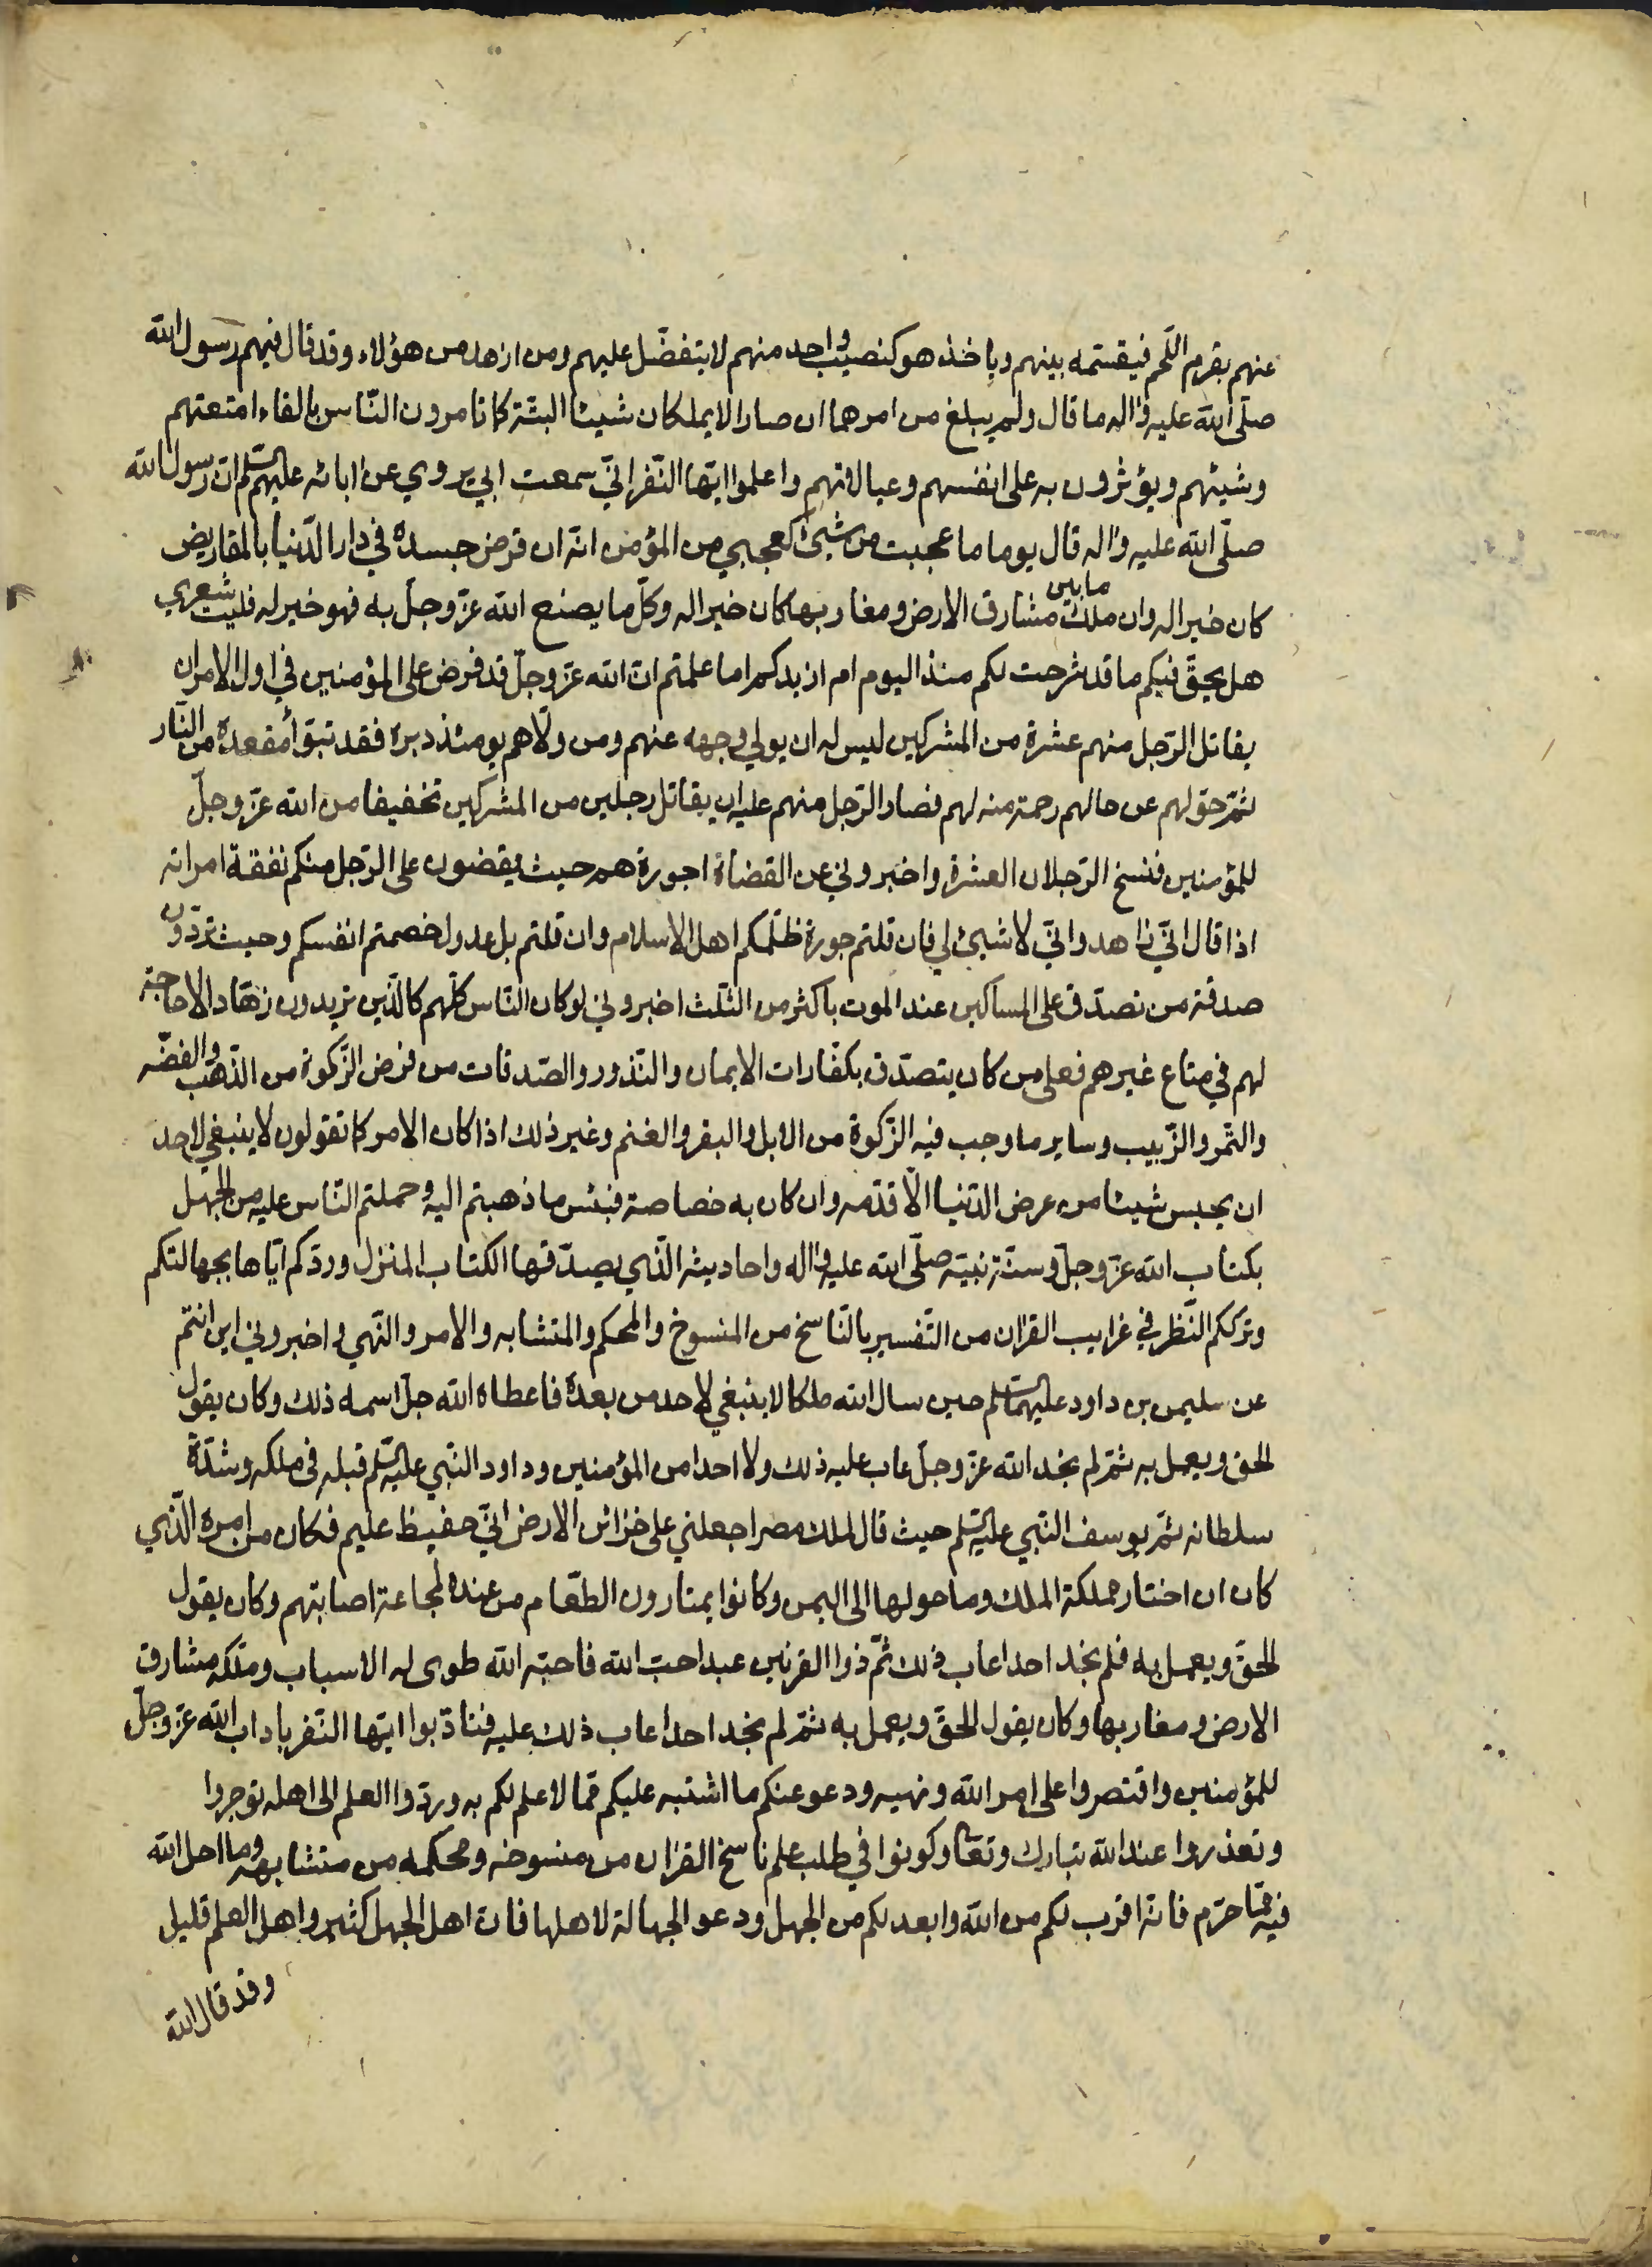 عنهم بقرم اللّحم فيقسّمه بينهم وياخذ هو كنصيب واحد منهم لا يتفضّل عليهم ومن ازهد من هؤلاء وقد قال فيهم رسول الله
صلّى الله عليه واله ما قال ولم يبلغ من امرهما ان صارا لا يملكان شيئا البتّة كما تامرون النّاس بالقاء امتعتهم
وشيئهم ويؤثرون به على انفسهم وعيالاتهم واعلموا ايّها النّفر انّي سمعت ابي يروي عن ابائه عليهم السّلم ان رسول الله
صلّى الله عليه واله قال يوما ما عجبت من شيئ كعجبي من المؤمن انّه ان قرض جسده في دار الدّنيا بالمقاريض
كان خيرا له وان ملك ما بين مشارق الارض ومغاربها كان خيرا له وكلّ ما يصنع الله عزّ وجلّ به فهو خير له فليت شعري
هل يحقّ فيكم ما قد شرحت لكم منذ اليوم ام ازيدكم اما علمتم انّ الله عزّ وجلّ قد فرض على المؤمنين في اول الامر ان
يقاتل الرّجل منهم عشرة من المشركين ليس له ان يولي وجهه عنهم ومن ولّاهم يومئذ دبره فقد تبوّأ مقعده من النّار
ثمّ حولهم عن حالهم رحمة منه لهم فصار الرّجل منهم عليه ان يقاتل رجلين من المشركين تخفيفا من الله عزّ وجلّ
للمؤمنين فنسخ الرّجلان العشرة واخبروني عن القضاة اجورة هم حيث يقضون على الرّجل منكم نفقة امراته
اذا قال انّي زاهد وانّي لا شيئ لي فان قلتم جورة ظلّمكم اهل الاسلام وان قلتم بل عدول خصمتم انفسكم وحيث تردّون
صدقة من تصدّق على المساكين عند الموت باكثر من الثّلث اخبروني لو كان النّاس كلّهم كالّذين تريدون زهّادا لا حاجة
لهم في متاع غيرهم فعلى من كان يتصدّق بكفّارات الايمان والنّذور والصّدقات من فرض الزّكوة من الذّهب والفضّه
والتّمر والزّبيب وساير ما وجب فيه الزّكوة من الابل والبقر والغنم وغير ذلك اذا كان الامر كما تقولون لا ينبغي لاحد
ان يحبس شيئا من عرض الدّنيا الّا قدّمه وان كان به خصاصة فبئس ما ذهبتم اليه وحملتم النّاس عليه من الجهل
بكتاب الله عزّ وجلّ وسنّة نبيّه صلّى الله عليه واله واحاديثه الّتي يصدّقها الكتاب المنزل وردّكم ايّاها بجهالتكم
وترككم النّظر في غرايب القران من التّفسير بالنّاسخ من المنسوخ والمحكم والمتشابه والامر والنّهي واخبروني اين انتم
عن سليمن بن داود عليهما السّلم حين سال الله ملكا لا ينبغي لاحد من بعده فاعطاه الله جلّ اسمه ذلك وكان يقول
الحق ويعمل به ثمّ لم نجد الله عزّ وجلّ عاب عليه ذلك ولا احدا من المؤمنين وداود النّبي عليه السّلم قبله في ملكه وشدّة
سلطانه ثمّ يوسف النّبي عليه السّلم حيث قال لملك مصر اجعلني على خزائن الارض انّي حفيظ عليم فكان من امره الّذي
كان ان اختار مملكة الملك وما حولها الى اليمن وكانوا يمتارون الطّعام من عنده لمجاعة اصابتهم وكان يقول
الحقّ ويعمل به فلم نجد احدا عاب ذلك ثمّ ذوا القرنين عبد احبّ الله فاحبّه الله طوى له الاسباب وملّكه مشارق
الارض ومغاربها وكان يقول الحقّ ويعمل به ثمّ لم نجد احدا عاب ذلك عليه فتادّبوا ايّها النّفر باداب الله عزّ وجلّ
للمؤمنين واقتصروا على امر الله ونهيه ودعو عنكم ما اشتبه عليكم ممّا لا علم لكم به وردّوا العلم الى اهله توجروا
وتعذروا عند الله تبارك وتعا وكونوا في طلب علم ناسخ القران من منسوخه ومحكمه من متشابهه وما احل الله
فيه ممّا حرّم فانّه اقرب لكم من الله وابعد لكم من الجهل ودعو الجهالة لاهلها فان اهل الجهل كثير واهل العلم قليل
وقد قال الله